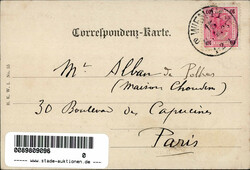 Correspondenz-Karte.
WIEN
Mr Alban de Polhes
(Maison Choudens)
30 Boulevard des Capucines
Paris
0089809096
0
www.stade-auktionen.de